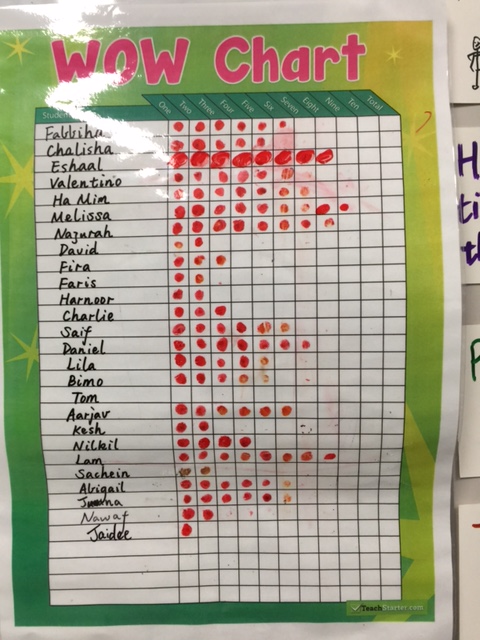 WOW Chart
One Two Three Four Five Six Seven Eight Nine Ten Total
Fabbiha
Chalisha
Eshaal
Valentino
Ha Mim
Melissa
Nazurah
David
Fira
Faris
Harnoor
Charlie
Saif
Daniel
Lila
Bimo
Tom
Aarjav
Kesh
Nilkil
Lam
Sachein
Abigail
Nawaf
Jaidee
TeachStarter.com